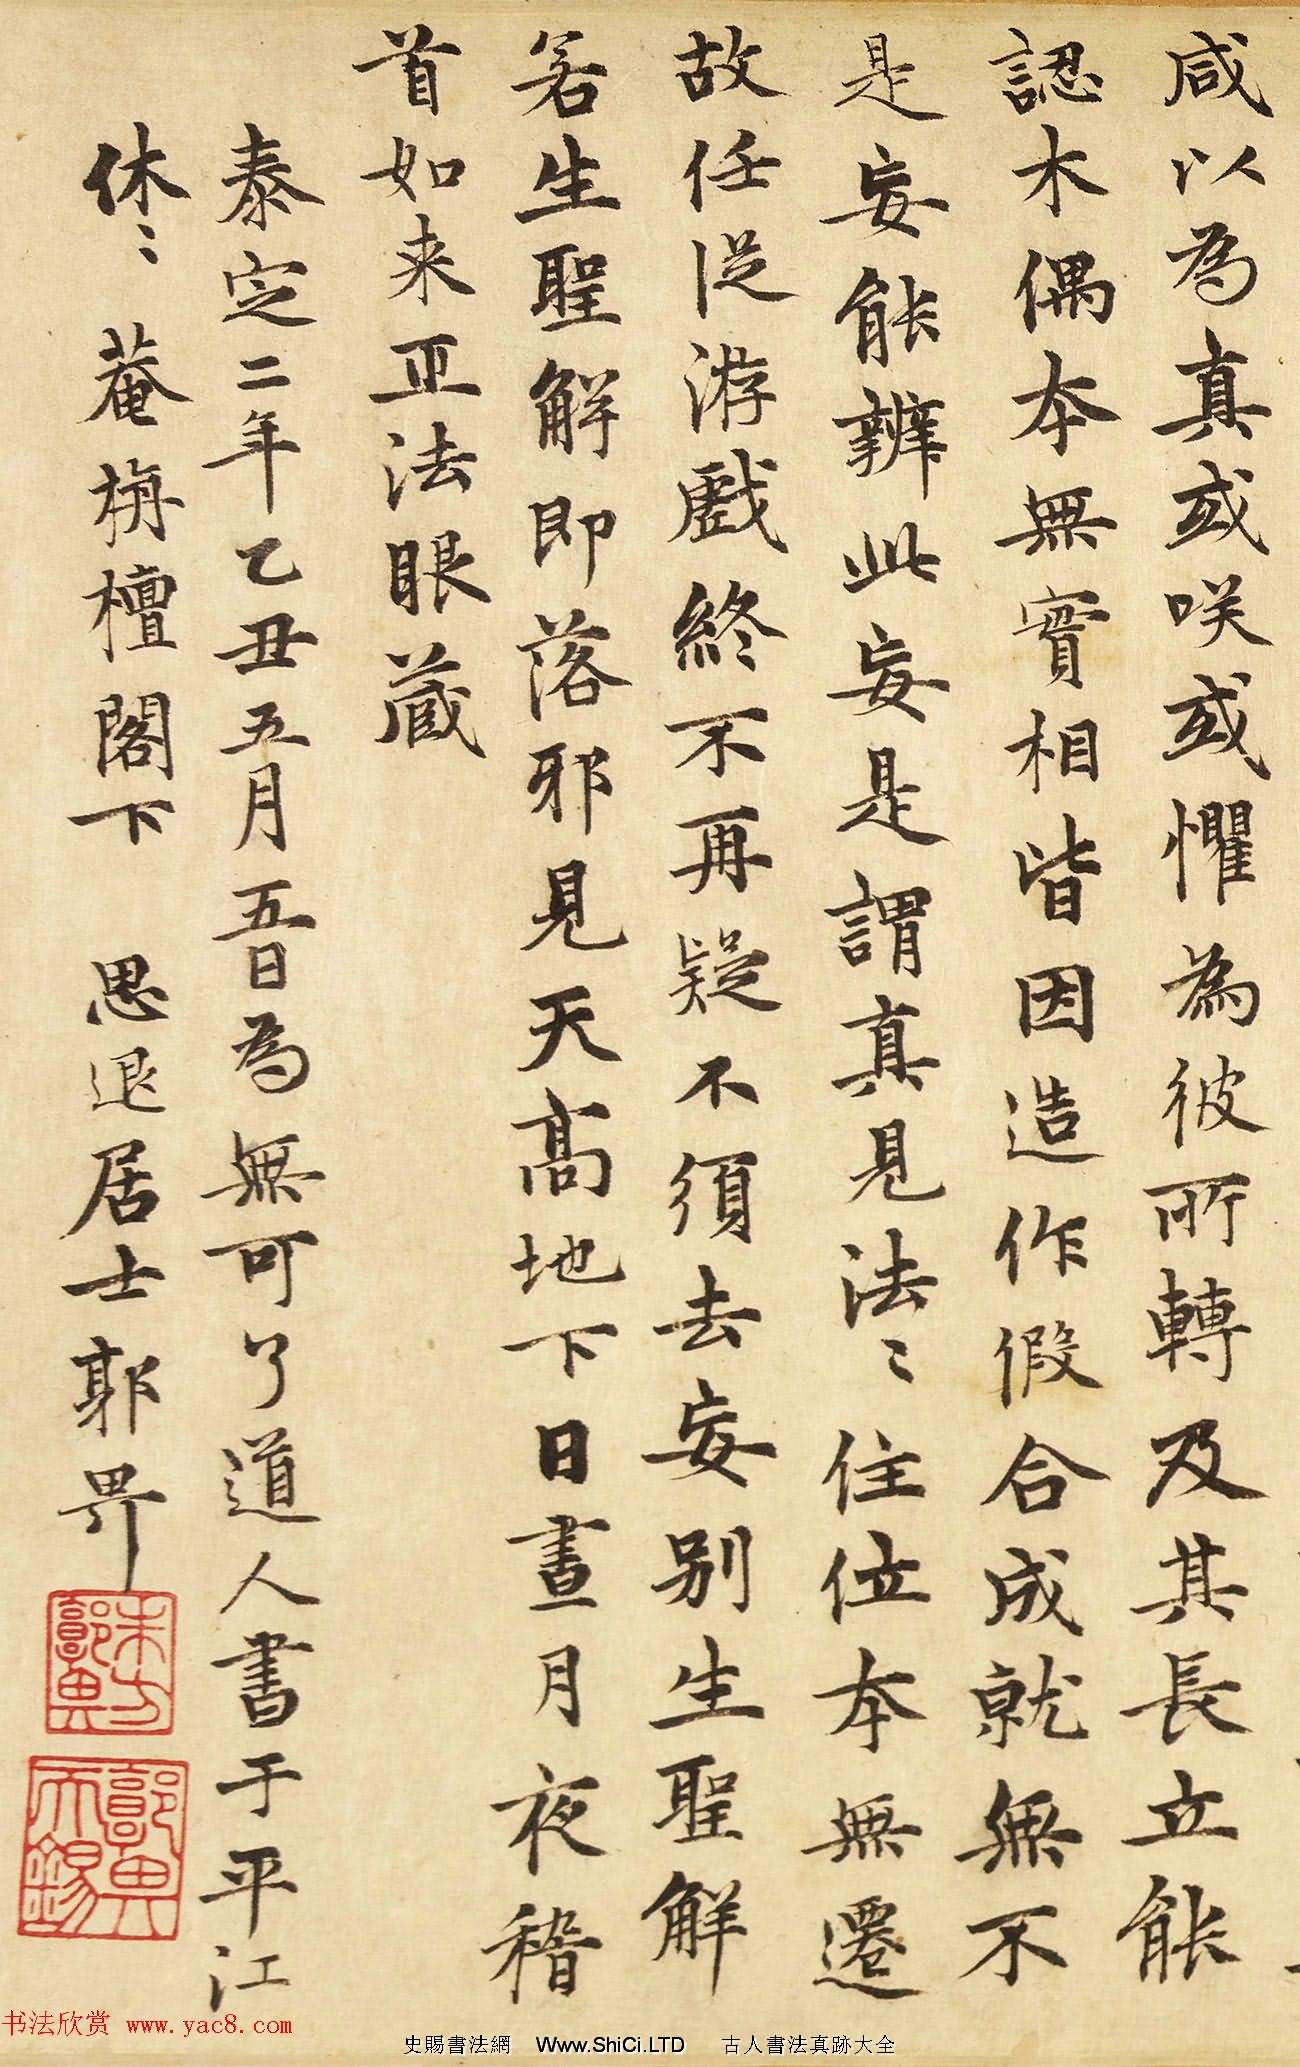 咸以為真或咲或懼為彼所轉及其長立能
認木偶本無實相皆因造作假合成就無不
是妄能辨此妄是謂真見法〻住位本無遷
故任從游戲終不再疑不須去妄別生聖解
若生聖解即落邪見天高地下日晝月夜稽
首如来正法眼藏
泰定二年乙丑五月五日為無可了道人書于平江
休〻菴栴檀閣下 思退居士郭畀
郭畀
郭畀
天錫
书法欣赏 www.yac8.com
史賜書法網 Www.ShiCi.LTD 古人書法真跡大全